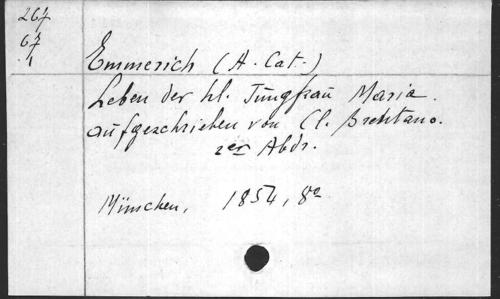 267
67
1
Emmerich (A. Cat.)
Leben der hl. Jungfrau Maria.
aufgeschrieben von Cl. Brentano.
2er Abdr.
München, 1854, 8o